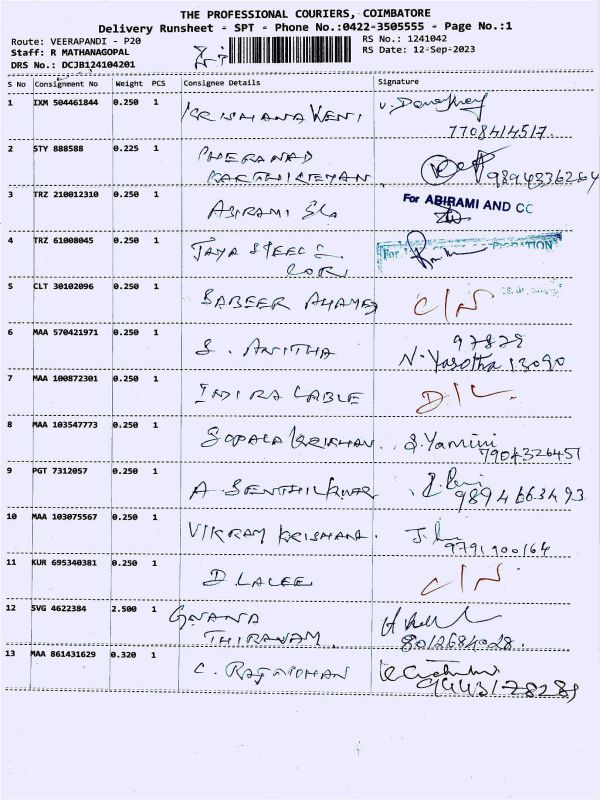 THE PROFESSIONAL COURIERS, COIMBATORE
Delivery Runsheet - SPT - Phone No.:0422-3505555 - Page No.:1
Route: VEERAPANDI - P20
RS No.: 1241042
Staff: R MATHANAGOPAL
RS Date: 12-Sep-2023
DRS No.: DCJB124104201
S No Consignment No Weight PCS Consignee Details Signature
1 IXM 504461844 0.250 1 KRISHANA VENI
7708414517.
2 STY 888588 0.225 1
KARTHIKEYAN 9894336264
3 TRZ 210012310 0.250 1 ABIRAMI For ABIRAMI AND CO
4 TRZ 61008045 0.250 1 JAYA STEEL For
CORI
5 CLT 30102096 0.250 1 SABEER AHAMED C/N
6 MAA 570421971 0.250 1 S. ANITHA 97829
N. Yasotha 13090
7 MAA 100872301 0.250 1 INDIRA CABLE D/L.
8 MAA 103547773 0.250 1 GOPALA KRISHAN. S. Yamini
7904326451
9 PGT 7312057 0.250 1 A. SENTHIL KUMAR
9894663493
10 MAA 103075567 0.250 1 VIKRAM KRISHANA.
9791900164
11 KUR 695340381 0.250 1 D. LALEE C/N
12 SVG 4622384 2.500 1 GNANA
THIRANAM. 8012684028.
13 MAA 861431629 0.320 1 C. RAJMOHAN
9443178289